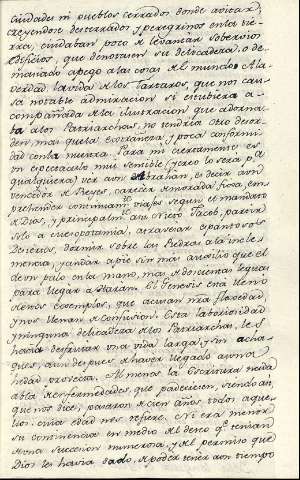 Ciudades ni pueblos cerrados donde avitar,
creyendose desterrados y peregrinos en la tie-
rra, cuidaban poco de levantar sobervios
Edificios, que denotasen su delicadeza, o de-
masiado apego a las cosas del mundo. A la
verdad la vida de los Tartaros, que nos cau-
sa notable admiracion si estubiera a-
compañada de la ilustracion que adorna-
ba a los Patriarchas, no tendria otro desor-
den, mas que la estrañeza, y poca conformi-
dad con la nuestra. Para mi ciertamente es
un espectaculo mui sensible (y creo lo sera pª
qualquiera) ver a un Abrahan, es decir a un
vencedor de Reyes, carecer de morada fixa, em-
prehender continuamte viajes segun el mandato
de Dios, y principalmte a su Nieto Jacob, partir
solo a Mesopotamia, atravesar espantosos
Desiertos, dormir sobre las Piedras a la incle-
mencia, y andar a pie sin mas auxilio que el
de un palo en la mano, mas de docientas leguas
para llegar a Haran. El Genesis esta lleno
de estos exemplos, que acusan nra flogedad,
y nos llenan de confusion. Esta laboriosidad
y ninguna delicadeza de los Patriarchas, les
hacia disfrutar una vida larga, y sin acha-
ques, aun despues de haver llegado a una
hedad provecta. Al menos la Escritura no da
abla de enfermedades, que padeciesen, siendo aun
que nos dice, pasaron de cien años todos aque-
llos cuia edad nos refiere. Ni era menor
su continencia en medio del deseo qe tenian
de una succesion numerosa, y del permiso que
Dios les havia dado, de poder tener a un tiempo